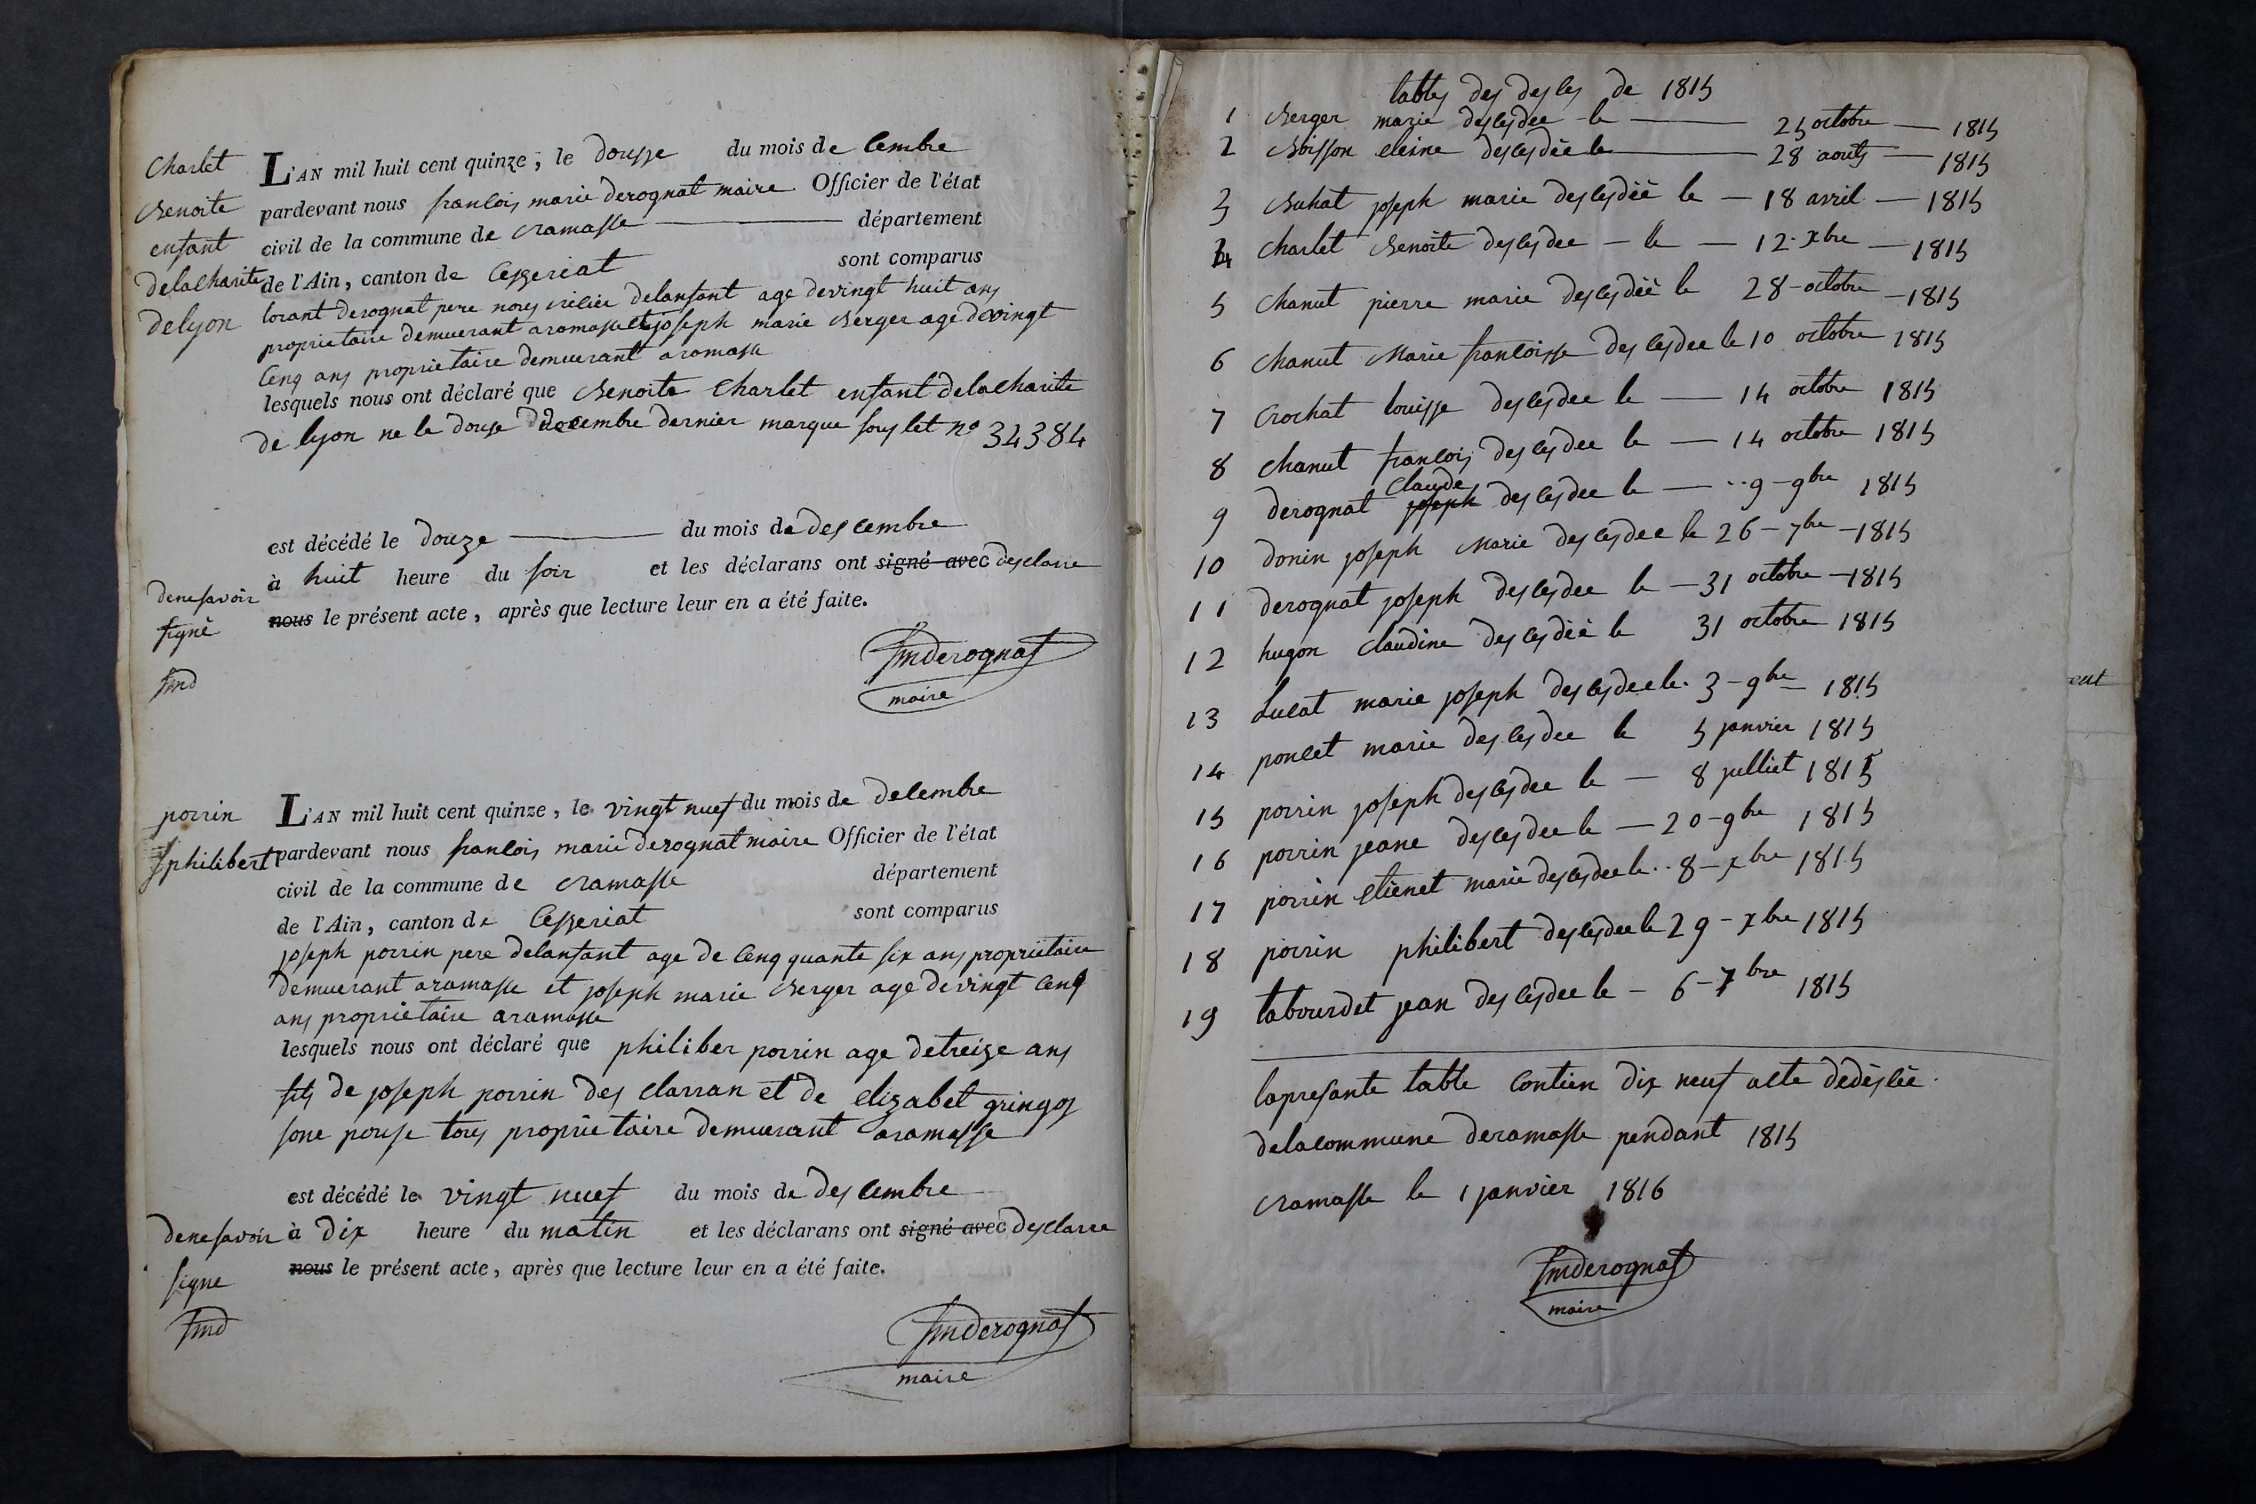 Charlet
Benoite
enfant
delacharite
delyon
L'AN mil huit cent quinze, le dousse du mois de cembre
pardevant nous francois marie derognat maire Officier de l'état
civil de la commune de cramasse département
de l'Ain, canton de Cesseriat sont comparus
lorant derognat pere nouricilié delanfant age devingt huit ans
proprietaire demuerant aramasse et joseph marie Berger age devingt
cenq ans proprietaire demuerant aramasse
lesquels nous ont déclaré que Benoite Charlet enfant delacharite
de lyon ne le douse decembre dernier marque sous let nº 34384
est décédé le douze du mois de descembre
à huit heure du soir et les déclarans ont signé avec desclare
denesavoir
signé
fmd
nous le présent acte, après que lecture leur en a été faite.
fmderognat
maire
porrin
philibert
L'AN mil huit cent quinze, le vingt nuef du mois de decembre
pardevant nous francois marie derognat maire Officier de l'état
civil de la commune de cramasse département
de l'Ain, canton de Cesseriat sont comparus
joseph porrin pere delanfant age de cenq quante six ans proprietaire
demuerant aramasse et joseph marie Berger age devingt cenq
ans proprietaire aramasse
lesquels nous ont déclaré que philiber porrin age detreize ans
fils de joseph porrin des clarran et de elizabet gringoz
sone pouse tous proprietaire demuerant aramasse
est décédé le vingt nuef du mois de descembre
à dix heure du matin et les déclarans ont signé avec desclarre
denesavoir
signe
fmd
nous le présent acte, après que lecture leur en a été faite.
fmderognat
maire
tables des desces de 1815
1 Berger marie descesdee le 25 octobre 1815
2 Boisson eleine descesdée le 28 aouts 1815
3 Buhat joseph marie descesdéé le 18 avril 1815
4 Charlet Benoite descesdee le 12 xbre 1815
5 Chanut pierre marie descesdéé le 28 octobre 1815
6 Chanut Marie francoisse descesdee le 10 octobre 1815
7 Crochat louisse descesdee le 14 octobre 1815
8 Chanut francois descesdee le 14 octobre 1815
9 derognat joseph claude descesdee le 9 - 9bre 1815
10 donin joseph Marie descesdee le 26 - 7bre - 1815
11 derognat joseph descesdee le - 31 octobre - 1815
12 hugon Claudine descesdéé le 31 octobre 1815
13 Lucat marie joseph descesdee le 3 - 9bre 1815
14 poncet marie descesdee le 5 janvier 1815
15 porrin joseph descesdee le - 8 julliet 1815
16 porrin jeane descesdee le - 20 - 9bre 1815
17 porrin etienet marie descesdee le 8 - xbre 1815
18 porrin philibert descesdee le 29 - xbre 1815
19 tabourdet jean descesdee le - 6 - 7bre 1815
lapresante table Contien dix neuf acte dedéscée
delacommune deramasse pendant 1815
cramasse le 1 janvier 1816
fmderognat
maire